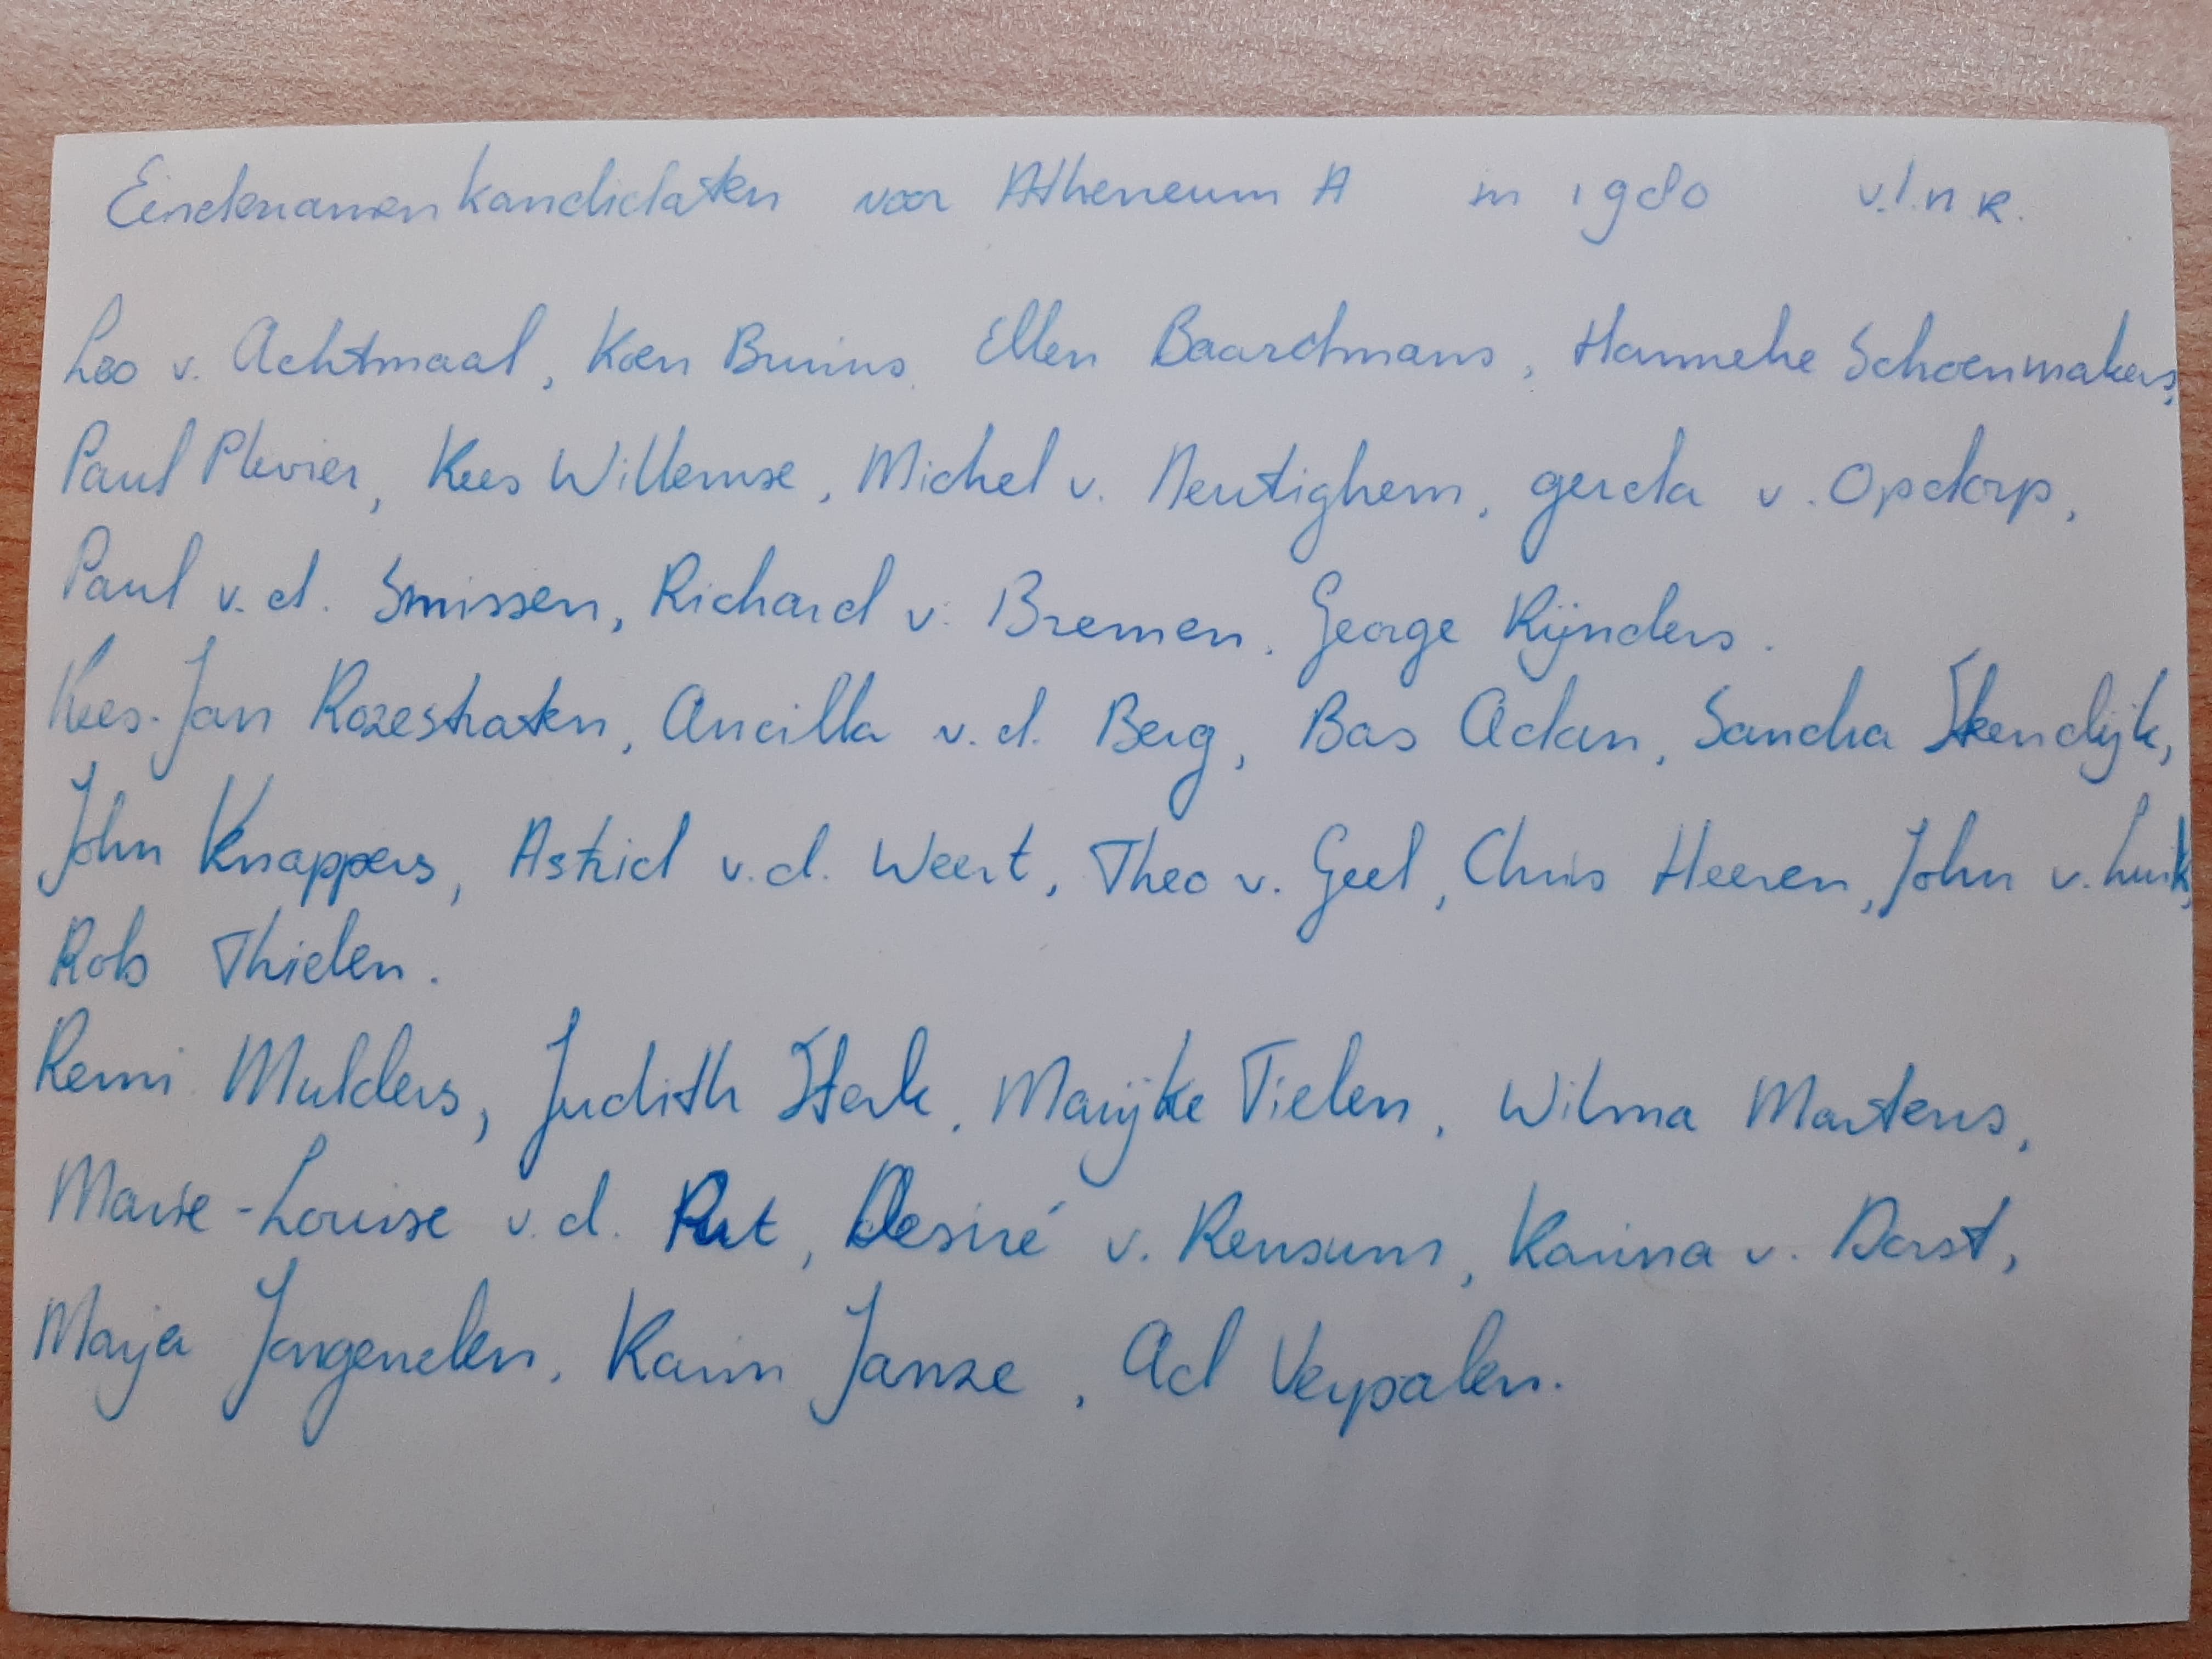 Eindexamenkandidaten voor Atheneum A in 1980 v.l.n.r.
Leo v. Achtmaal, Koen Bruins, Ellen Baardmans, Hanneke Schoenmakers,
Paul Plevier, Kees Willemse, Michel v. Neutighem, Gerda v. Opdorp,
Paul v.d. Smissen, Richard v. Bremen, George Rijnders.
Kees-Jan Rozestraten, Ancilla v.d. Berg, Bas Adan, Sandra Steendijk,
John Knappers, Astrid v.d. Weert, Theo v. Geel, Chris Heeren, John v. Luik,
Rob Thielen.
Remi Mulders, Judith Sterk, Marijke Tielen, Wilma Martens,
Marie-Louise v.d. Put, Desiré v. Rensum, Karina v. Dorst,
Marja Jongenelen, Karin Janse, Ad Verpalen.